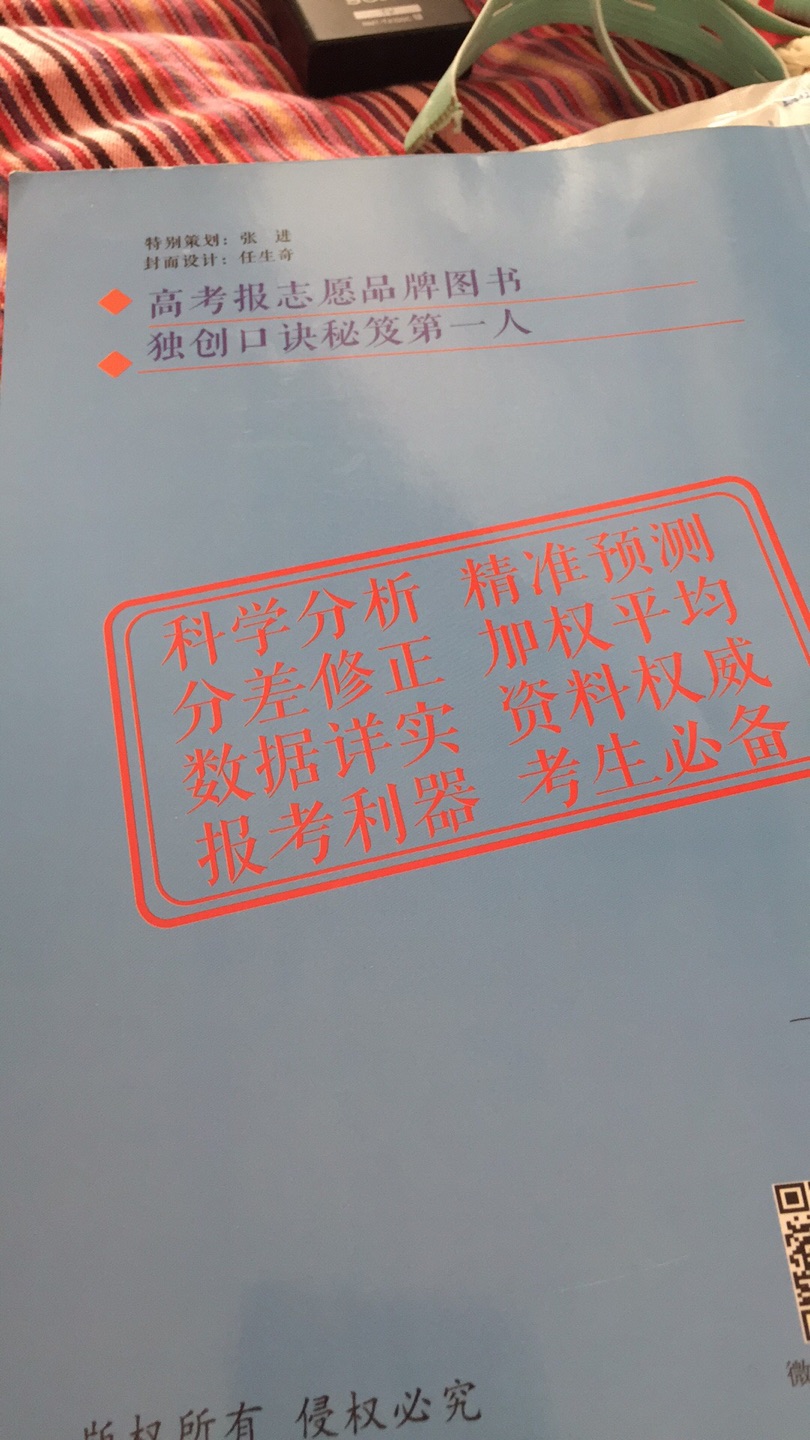 特别策划：张 进
封面设计：任生奇
高考报志愿品牌图书
独创口诀秘笈第一人
科学分析 精准预测
分差修正 加权平均
数据详实 资料权威
报考利器 考生必备
微
版权所有 侵权必究